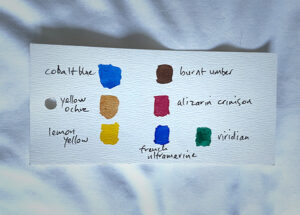 cobalt blue
burnt umber
yellow
ochre
alizarin crimson
lemon
yellow
french
ultramarine
viridian